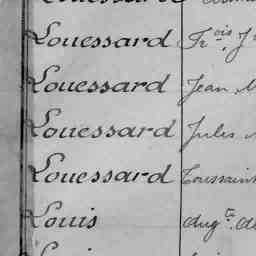 Louessard Frois J
Louessard Jean M
Louessard Jules
Louessard Toussaint
Louis Augte